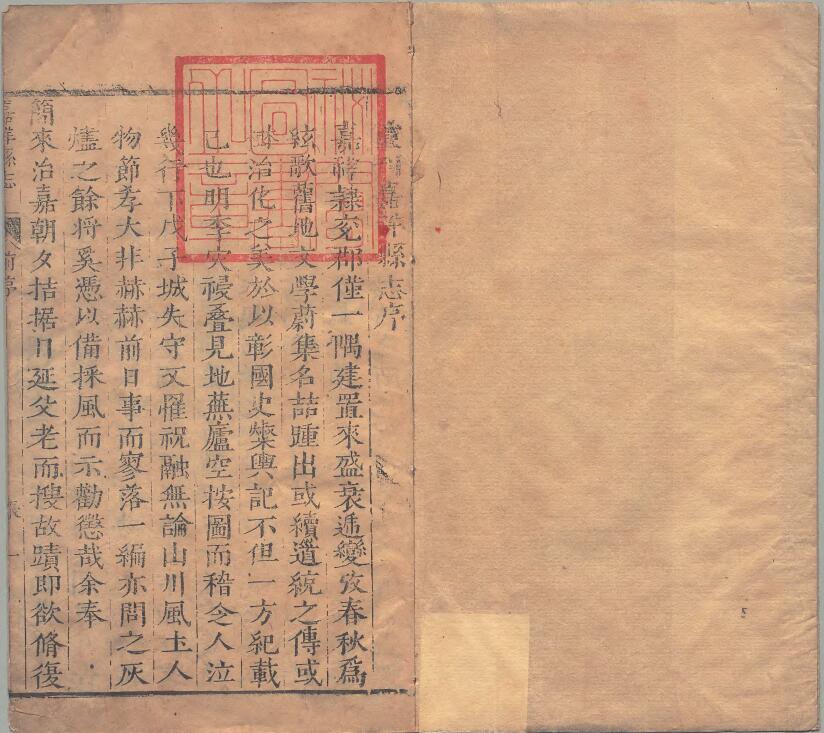 嘉祥縣志序
嘉祥隸兗郡僅一隅建置來盛衰遞變攷春秋爲
絃歌舊地文學蔚集名喆踵出或續道統之傳或
治化之美於以彰國史燦輿記不但一方紀載
已也明季災祲疊見地蕪廬空按圖而稽令人泣
幾行下戊子城失守又罹祝融無論山川風土人
物節孝大非赫赫前日事而寥落一編亦問之灰
燼之餘將奚憑以備採風而示勸懲哉余奉
簡來治嘉朝夕拮据日延父老而搜故蹟即欲脩復
嘉祥縣志
前序
張
一